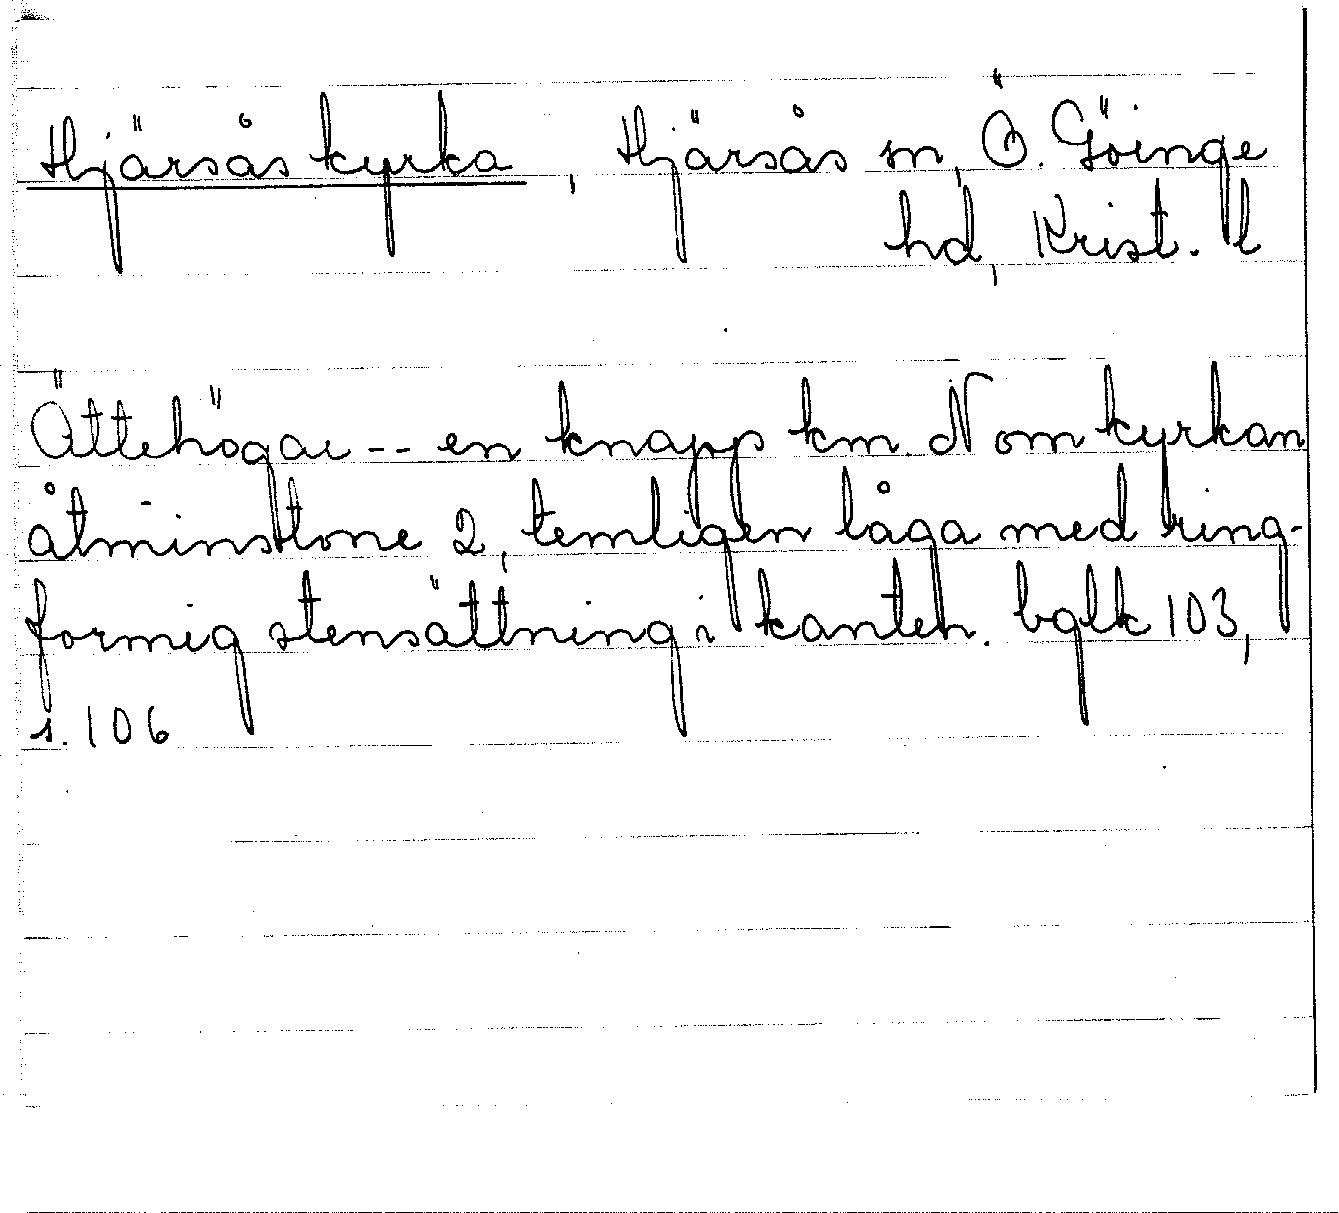 Hjärsås kyrka, Hjärsås sn, Ö. Göinge
hd, Krist. l
Ättehögar -- en knapp km. N om kyrkan
åtminstone 2, temligen låga med ring-
formig stensättning i kanten. bglk 103,
s. 106